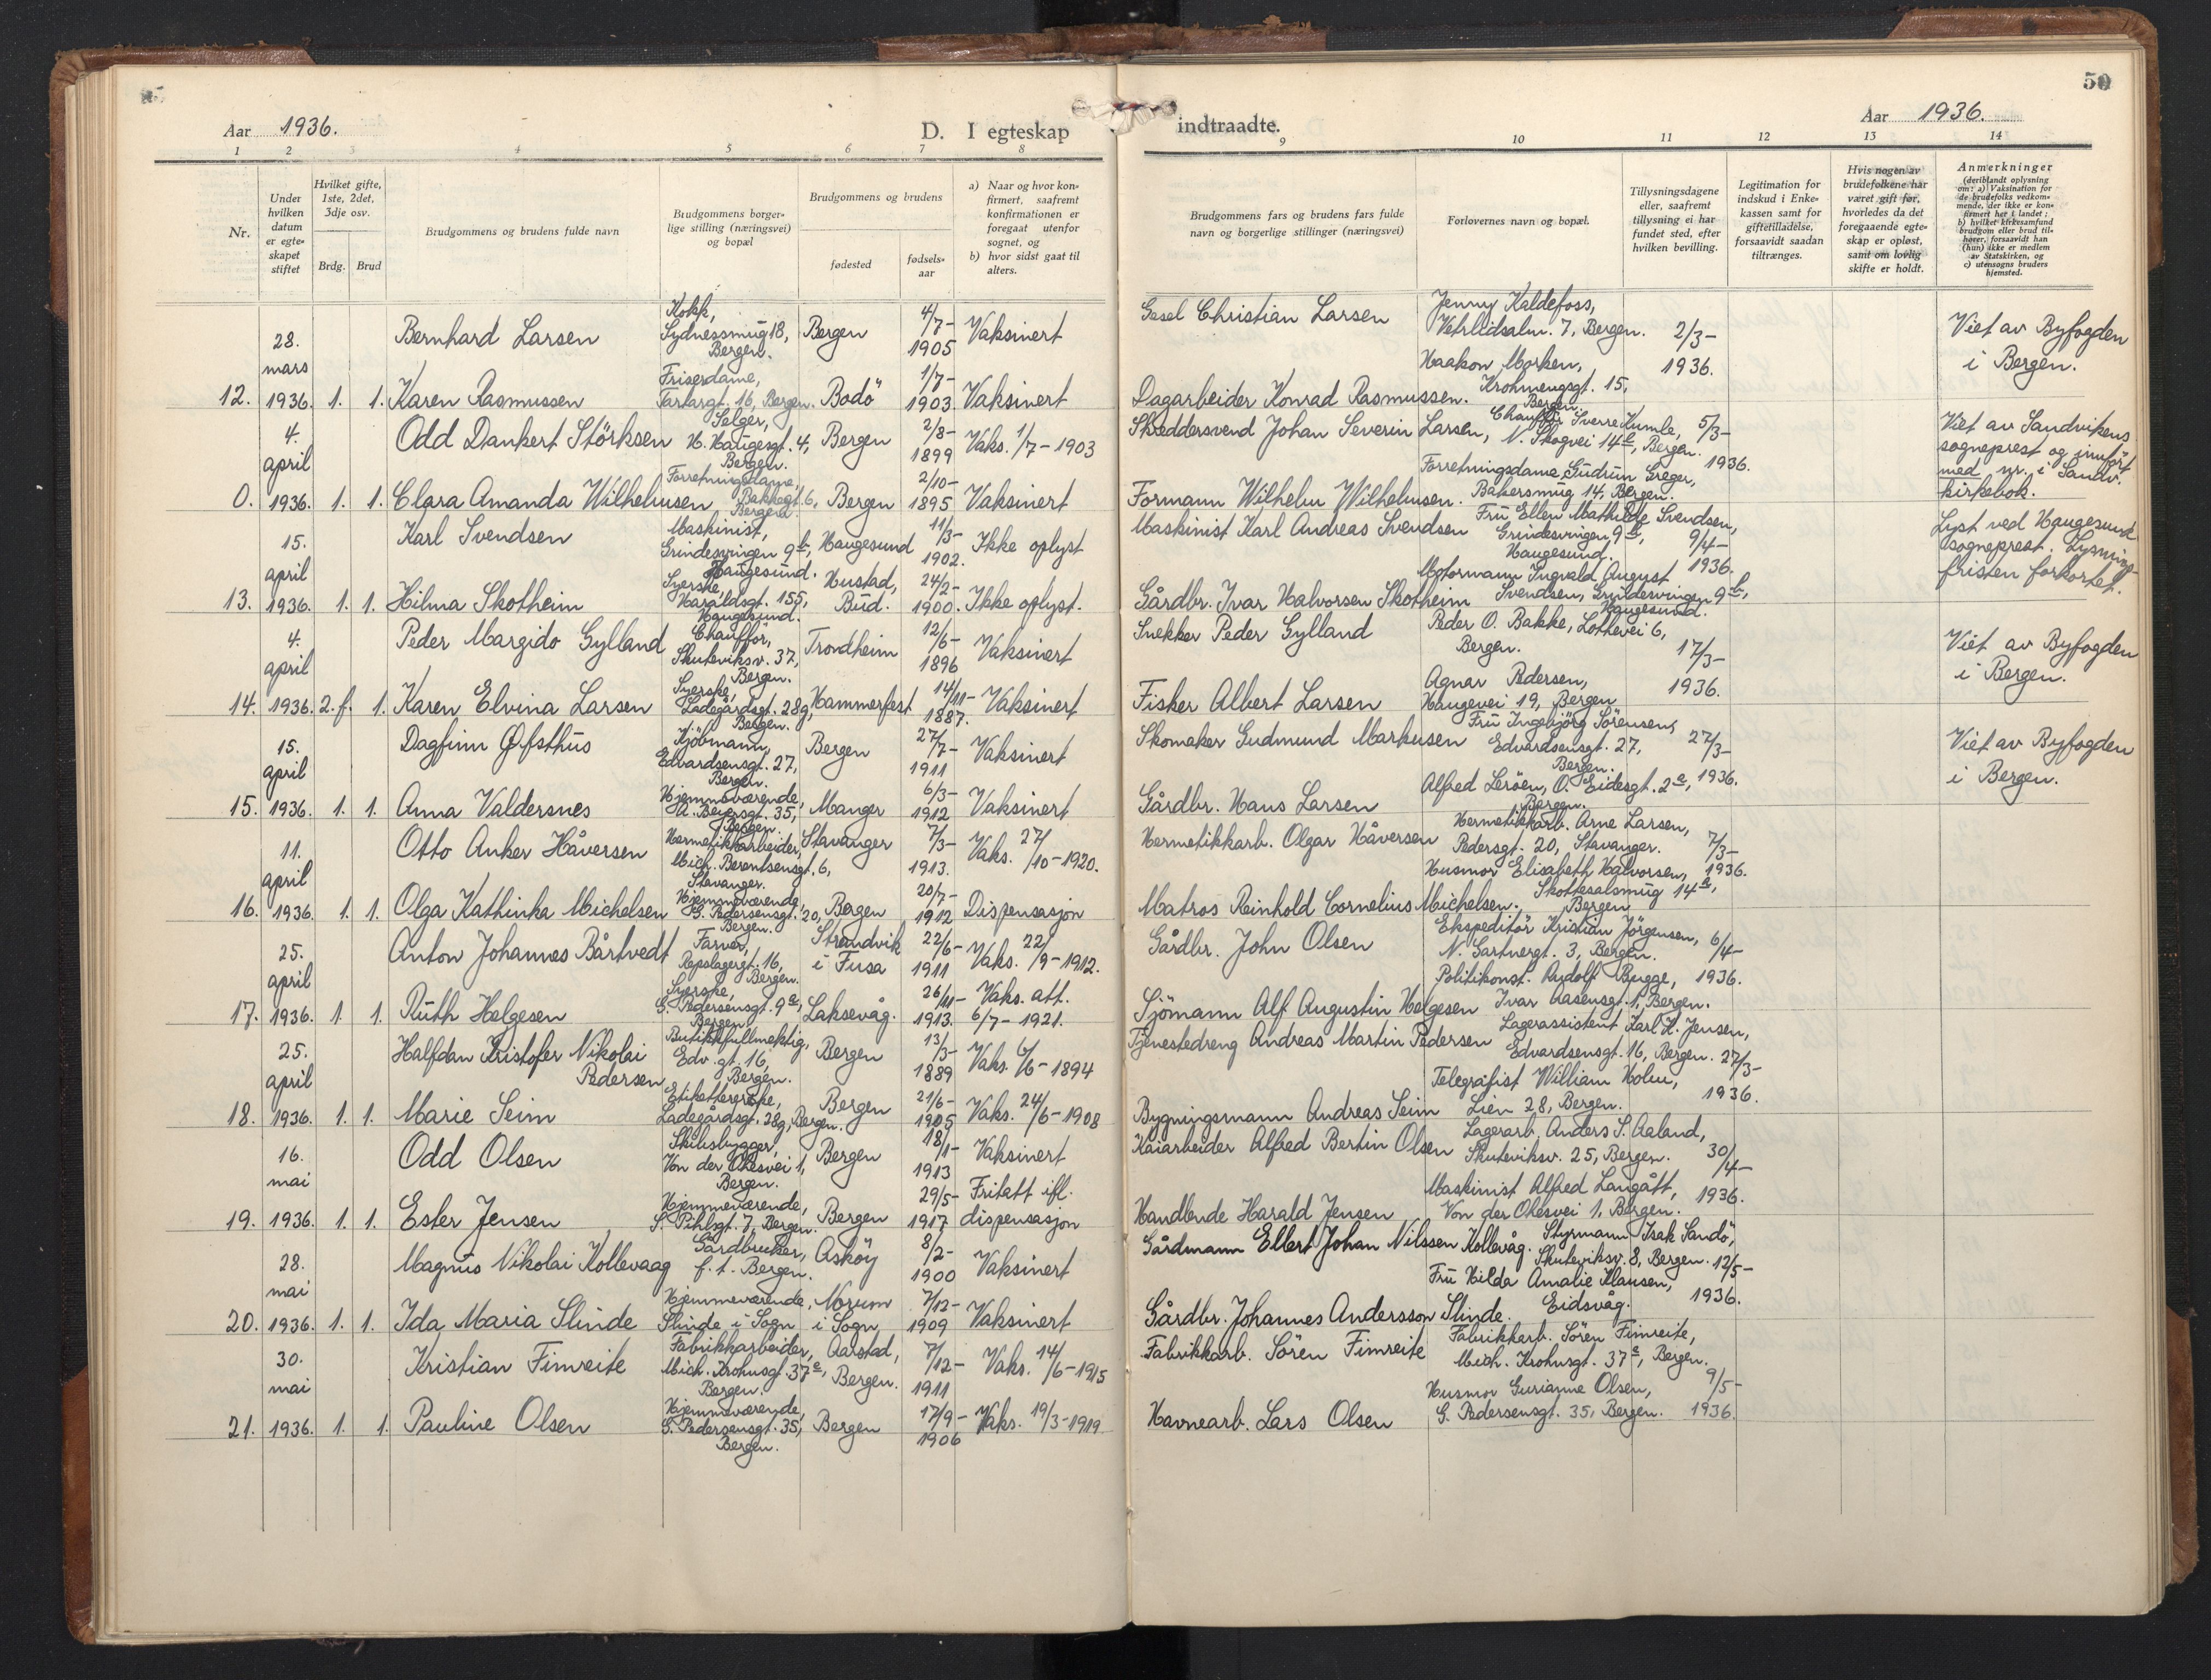 50
Aar 1936.
D. I egteskap
indtraadte.
Aar 1936.
1 2 3 4 5 6 7 8
9 10 11 12 13 14
Nr.
Under hvilken datum er egteskapet stiftet
Hvilket gifte, 1ste, 2det, 3dje osv.
Brdg. Brud
Brudgommens og brudens fulde navn
Brudgommens borgerlige stilling (næringsvei) og bopæl
Brudgommens og brudens
fødested
fødselsaar
a) Naar og hvor konfirmert, saafremt konfirmationen er foregaat utenfor sognet, og
b) hvor sidst gaat til alters.
Brudgommens fars og brudens fars fulde navn og borgerlige stillinger (næringsvei)
Forlovernes navn og bopæl.
Tillysningsdagene eller, saafremt tillysning ei har fundet sted, efter hvilken bevilling.
Legitimation for indskud i Enkekassen samt for giftetilladelse, forsaavidt saadan tiltrænges.
Hvis nogen av brudefolkene har været gift før, hvorledes da det foregaaende egteskap er opløst, samt om lovlig skifte er holdt.
Anmerkninger
(deriblandt oplysning om: a) Vaksination for de brudefolks vedkommende, der ikke er konfirmert her i landet; b) hvilket kirkesamfund brudgom eller brud tilhører, forsaavidt han (hun) ikke er medlem av Statskirken, og c) utensogns bruders hjemsted.
28. mars
Bernhard Larsen
Kokk, Sydnessmug 18, Bergen.
Bergen
4/7- 1905
Vaksinert
Christian Larsen
Jenny Kaldefoss, 7, Bergen.
2/3- 1936.
Viet av Byfogden i Bergen.
12. 1936. 1. 1. Karen Rasmussen
Friserdame, Tartargt. 16, Bergen.
Bodö
1/7- 1903.
Vaksinert
Dagarbeider Konrad Rasmussen.
Haakon Morken, Krohnengsgt. 15, Bergen.
4. april
Odd Dankert Störksen
Selger, H. Haugesgt. 4, Bergen.
Bergen
2/8- 1899
Vaks. 1/7-1903
Skreddersvend Johan Severin Larsen,
Chauffør Sverre Kumle, N. Skogvei 14e, Bergen.
5/3- 1936.
Viet av Sandvikens sogneprest og innført med nr. i Sandv. kirkebok.
0. 1936. 1. 1. Clara Amanda Wilhelmsen
Forretningsdame, Bakkegt. 6, Bergen.
Bergen
2/10- 1895
Vaksinert
Formann Wilhelm Wilhelmsen.
Forretningsdame Gudrun Greger, Bakersmug 14, Bergen.
15. april
Karl Svendsen
Maskinist, Grindesvingen 9b, Haugesund.
Haugesund
11/3- 1902.
Ikke oplyst
Maskinist Karl Andreas Svendsen
Fru Ellen Mathilde Svendsen, Grindesvingen 9b, Haugesund.
9/4- 1936.
Lyst ved Haugesund sogneprest. Lysningsfristen forkortet.
13. 1936. 1. 1. Hilma Skotheim
Syerske, Haraldsgt. 155, Haugesund.
Hustad, Bud.
24/2- 1900.
Ikke oplyst.
Gårdbr. Ivar Halvorsen Skotheim
Motormann Ingvald August Svendsen, Grindesvingen 9b, Haugesund.
4. april
Peder Margido Gylland
Chauffør, Skuteviksv. 37, Bergen.
Trondheim
12/6- 1896
Vaksinert
Snekker Peder Gylland
Peder O. Bakke, Lothevei 6, Bergen.
17/3- 1936.
Viet av Byfogden i Bergen.
14. 1936. 2. f. 1. Karen Elvina Larsen
Syerske, Ladegårdsgt. 28g, Bergen.
Hammerfest
14/11- 1887.
Vaksinert
Fisker Albert Larsen
Agnar Pedersen, Haugevei 19, Bergen
15. april
Dagfinn Øfsthus
Kjøbmann, Edvardsensgt. 27, Bergen.
Bergen
27/7- 1911
Vaksinert
Skomaker Gudmund Markusen
Fru Ingebjörg Sörensen, Edvardsensgt. 27, Bergen.
27/3- 1936.
Viet av Byfogden i Bergen.
15. 1936. 1. 1. Anna Valdersnes
Hjemmeværende, A. Beyersgt. 35, Bergen.
Manger
6/3- 1912
Vaksinert
Gårdbr. Hans Larsen
Alfred Leröen, O. Eidesgt. 2a, Bergen.
11. april
Otto Anker Håversen
Hermetikkarbeider, Mich. Berentsensgt. 6, Stavanger.
Stavanger
7/3- 1913.
Vaks. 27/10-1920.
Hermetikkarb. Olgar Håversen
Hermetikkarb. Arne Larsen, Pedersgt. 20, Stavanger.
7/3- 1936.
16. 1936. 1. 1. Olga Kathinka Michelsen
Hjemmeværende, G. Pedersensgt. 20, Bergen.
Bergen
20/7- 1912
Dispensasjon
Matros Reinhold Cornelius Michelsen.
Husmor Elisabeth Halvorsen, Skottesalsmug 14a, Bergen
25. april
Anton Johannes Bårtvedt
Farver, Repslagergt. 16, Bergen.
Strandvik i Fusa
22/6- 1911
Vaks. 22/9-1912.
Gårdbr. John Olsen
Ekspeditör Kristian Jörgensen, N. Gartnergt. 3, Bergen.
6/4- 1936.
17. 1936. 1. 1. Ruth Helgesen
Syerske, G. Pedersensgt. 9a, Bergen
Laksevåg.
26/11- 1913.
Vaks. att. 6/7-1921.
Sjömann Alf Augustin Helgesen
Politikonst. Rudolf Bugge, Ivar Aasensgt. 1, Bergen.
25. april
Halfdan Kristofer Nikolai Pedersen
Butikkfullmektig, Edv. gt. 16, Bergen.
Bergen
13/3- 1889
Vaks. 6/6-1894
Tjenestedreng Andreas Martin Pedersen
Lagerassistent Karl K. Jensen, Edvardsensgt. 16, Bergen.
27/3- 1936.
18. 1936. 1. 1. Marie Seim
Ladegårdsgt. 28g, Bergen.
Bergen
21/6- 1905
Vaks. 24/6-1908
Bygningsmann Andreas Seim
Telegrafist William Holm, Lien 28, Bergen.
16. mai
Odd Olsen
Skibsbygger, Von der Ohesvei 1, Bergen.
Bergen
18/1- 1913
Vaksinert
Kaiarbeider Alfred Bertin Olsen
Lagerarb. Anders S. Aaland, Skuteviksv. 25, Bergen.
30/4- 1936.
19. 1936. 1. 1. Ester Jensen
Hjemmeværende, S. Pihlsgt. 7, Bergen.
Bergen
29/5- 1917
Fritatt ifl. dispensasjon
Handlende Harald Jensen
Maskinist Alfred Langått, Von der Ohesvei 1, Bergen.
28. mai
Magnus Nikolai Kollevaag
Gårdbruker, f. t. Bergen.
Asköy
8/2- 1900
Vaksinert
Gårdmann Ellert Johan Nilssen Kollevåg.
Styrmann Isak Sandö, Skuteviksv. 8, Bergen.
12/5- 1936.
20. 1936. 1. 1. Ida Maria Slinde
Hjemmeværende, Slinde i Sogn
Norum i Sogn
7/12- 1909
Vaksinert
Gårdbr. Johannes Andersson Slinde.
Fru Hilda Amalie Klausen, Eidsvåg.
30. mai
Kristian Fimreite
Fabrikkarbeider, Mich. Krohnsgt. 37a, Bergen.
Aarstad, Bergen.
7/12- 1911
Vaks. 14/6-1915
Fabrikkarb. Sören Fimreite
Fabrikkarb. Sören Fimreite, Mich. Krohnsgt. 37a, Bergen.
9/5- 1936.
21. 1936. 1. 1. Pauline Olsen
Hjemmeværende, G. Pedersensgt. 35, Bergen.
Bergen
17/9- 1906
Vaks. 19/3-1919
Havnearb. Lars Olsen
Husmor Gurianne Olsen, G. Pedersensgt. 35, Bergen.